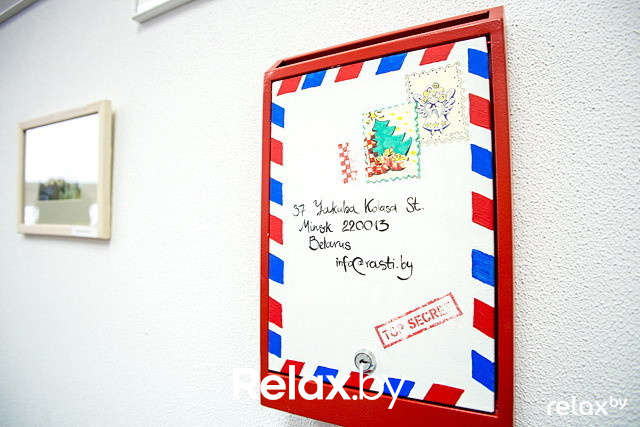 37 Yakuba Kolasa St.
Minsk 220013
Belarus
info@rasti.by
TOP SECRET
Relax.by
relax.by